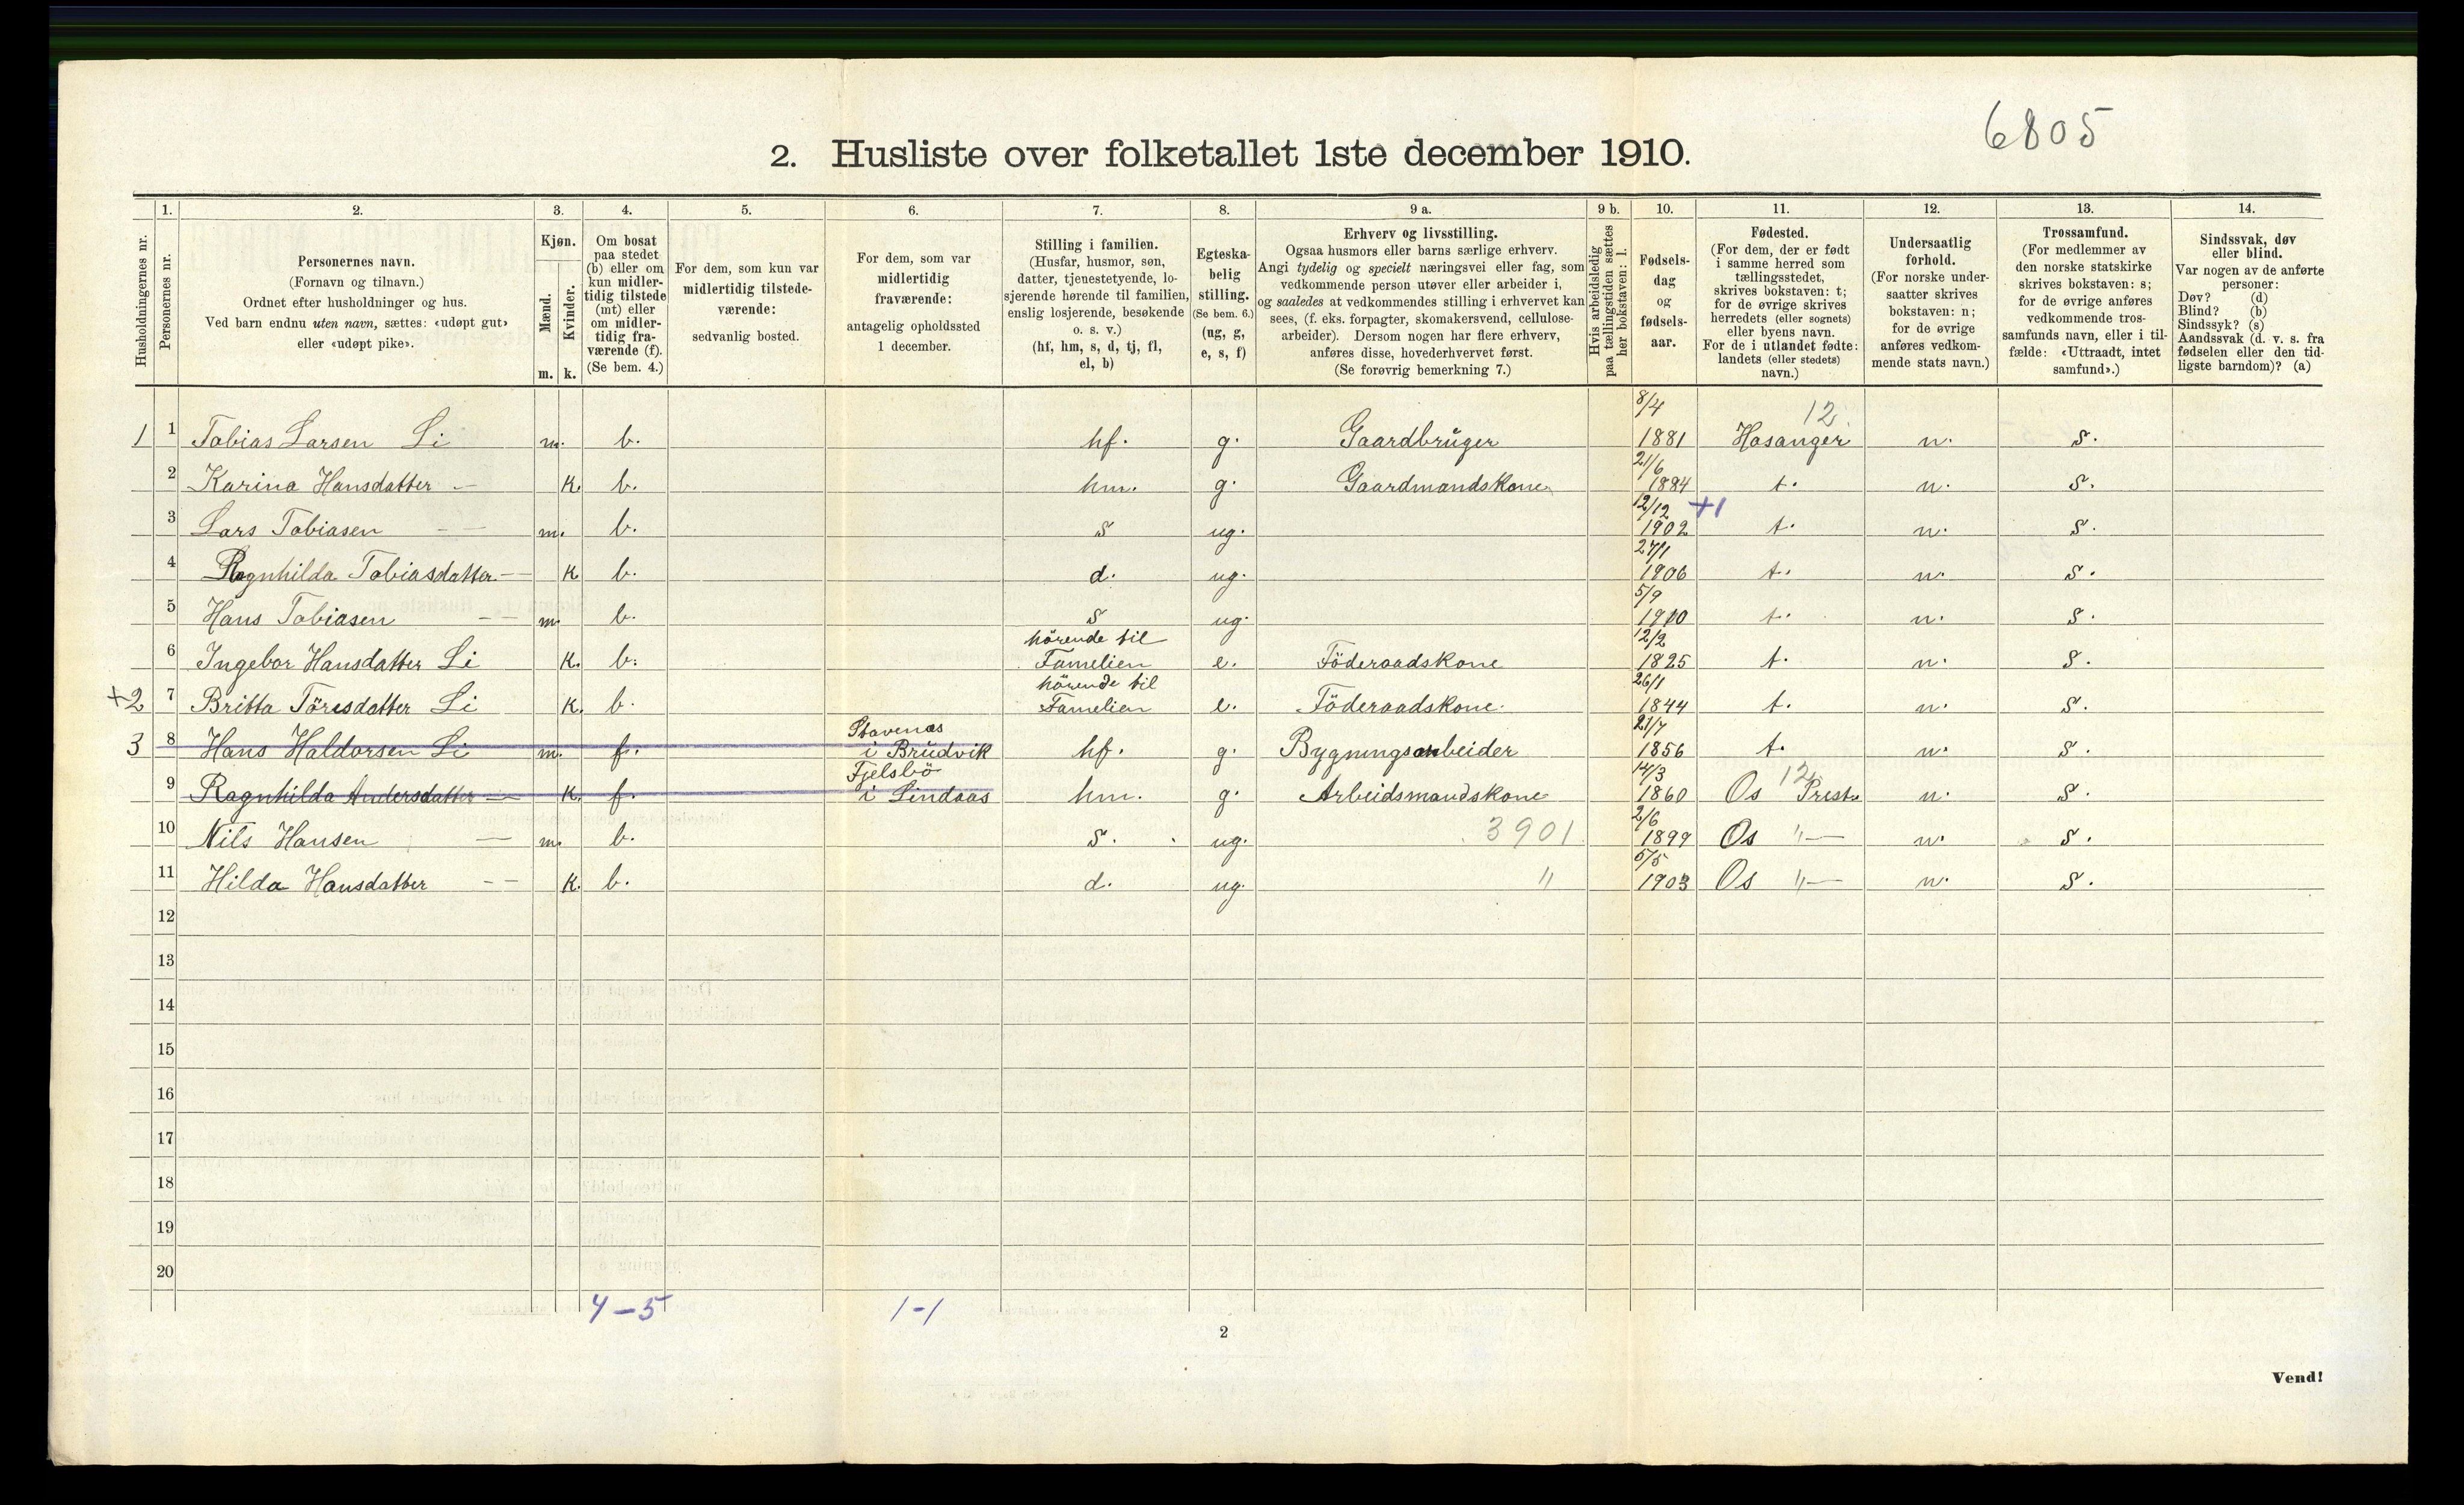 6805
2. Husliste over folketallet 1ste december 1910.
Husholdningernes nr.
1.
Personernes nr.
2.
Personernes navn.
(Fornavn og tilnavn.)
Ordnet efter husholdninger og hus.
Ved barn endnu uten navn, sættes: «udøpt gut»
eller «udøpt pike».
3.
Kjøn.
Mænd.
Kvinder.
m. k.
4.
Om bosat
paa stedet
(b) eller om
kun midler-
tidig tilstede
(mt) eller
om midler-
tidig fra-
værende (f).
(Se bem. 4.)
5.
For dem, som kun var
midlertidig tilstede-
værende:
sedvanlig bosted.
6.
For dem, som var
midlertidig
fraværende:
antagelig opholdssted
1 december.
7.
Stilling i familien.
(Husfar, husmor, søn,
datter, tjenestetyende, lo-
sjerende hørende til familien,
enslig losjerende, besøkende
o. s. v.)
(hf, hm, s, d, tj, fl,
el, b)
8.
Egteska-
belig
stilling.
(Se bem. 6.)
(ug, g,
e, s, f)
9 a.
Erhverv og livsstilling.
Ogsaa husmors eller barns særlige erhverv.
Angi tydelig og specielt næringsvei eller fag, som
vedkommende person utøver eller arbeider i,
og saaledes at vedkommendes stilling i erhvervet kan
sees, (f. eks. forpagter, skomakersvend, cellulose-
arbeider). Dersom nogen har flere erhverv,
anføres disse, hovederhvervet først.
(Se forøvrig bemerkning 7.)
9 b.
Hvis arbeidsledig
paa tællingstiden sættes
her bokstaven: l.
10.
Fødsels-
dag
og
fødsels-
aar.
11.
Fødested.
(For dem, der er født
i samme herred som
tællingsstedet,
skrives bokstaven: t;
for de øvrige skrives
herredets (eller sognets)
eller byens navn.
For de i utlandet fødte:
landets (eller stedets)
navn.)
12.
Undersaatlig
forhold.
(For norske under-
saatter skrives
bokstaven: n;
for de øvrige
anføres vedkom-
mende stats navn.)
13.
Trossamfund.
(For medlemmer av
den norske statskirke
skrives bokstaven: s;
for de øvrige anføres
vedkommende tros-
samfunds navn, eller i til-
fælde: «Uttraadt, intet
samfund».)
14.
Sindssvak, døv
eller blind.
Var nogen av de anførte
personer:
Døv? (d)
Blind? (b)
Sindssyk? (s)
Aandssvak (d. v. s. fra
fødselen eller den tid-
ligste barndom)? (a)
8/4 12.
1 1 Tobias Larsen Li m. b. hf. g. Gaardbrüger 1881 Hosanger n. s.
21/6
2 Karina Hansdatter — k. b. hm. g. Gaardmandskone 1884 t. n. s.
12/12 +1
3 Lars Tobiasen — — m. b. s ug. 1902 t. n. s.
27/1
4 Ragnhilda Tobiasdatter — k b. d. ug. 1906 t. n. s.
5/9
5 Hans Tobiasen — — m. b. s ug. 1910 t. n. s.
hörende til 12/2
6 Ingebor Hansdatter Li k. b. Famelien e. Föderaadskone 1825 t. n. s.
hörende til 26/1
+2 7 Britta Töresdatter Li k. b. Famelien e. Föderaadskone. 1844 t. n. s.
Stavenæs 21/7
3 8 Hans Haldorsen Li m. f. i Brüdvik hf. g. Bygningsarbeider 1856 t. n. s.
Fjelsbö 14/3 12
9 Ragnhilda Andersdatter — k. f. i Lindaas hm. g. Arbeidsmandskone 1860 Os Prest. n. s.
2/6
10 Nils Hansen — m. b. s. ug. 3901 1899 Os "— n. s.
5/5
11 Hilda Hansdatter — — k. b. d. ug. " 1903 Os "— n. s.
12
13
14
15
16
17
18
19
20
4 – 5 1 - 1
2
Vend!